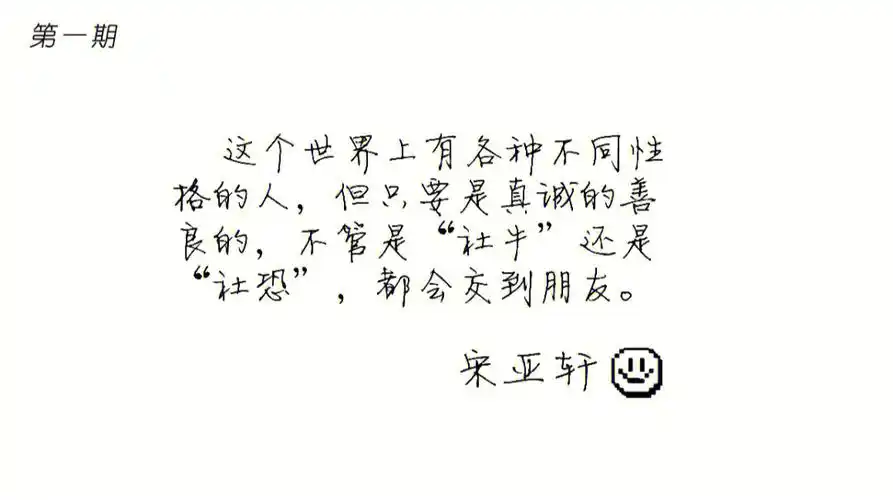 第一期
这个世界上有各种不同性
格的人，但只要是真诚的善
良的，不管是“社牛”还是
“社恐”，都会交到朋友。
宋亚轩